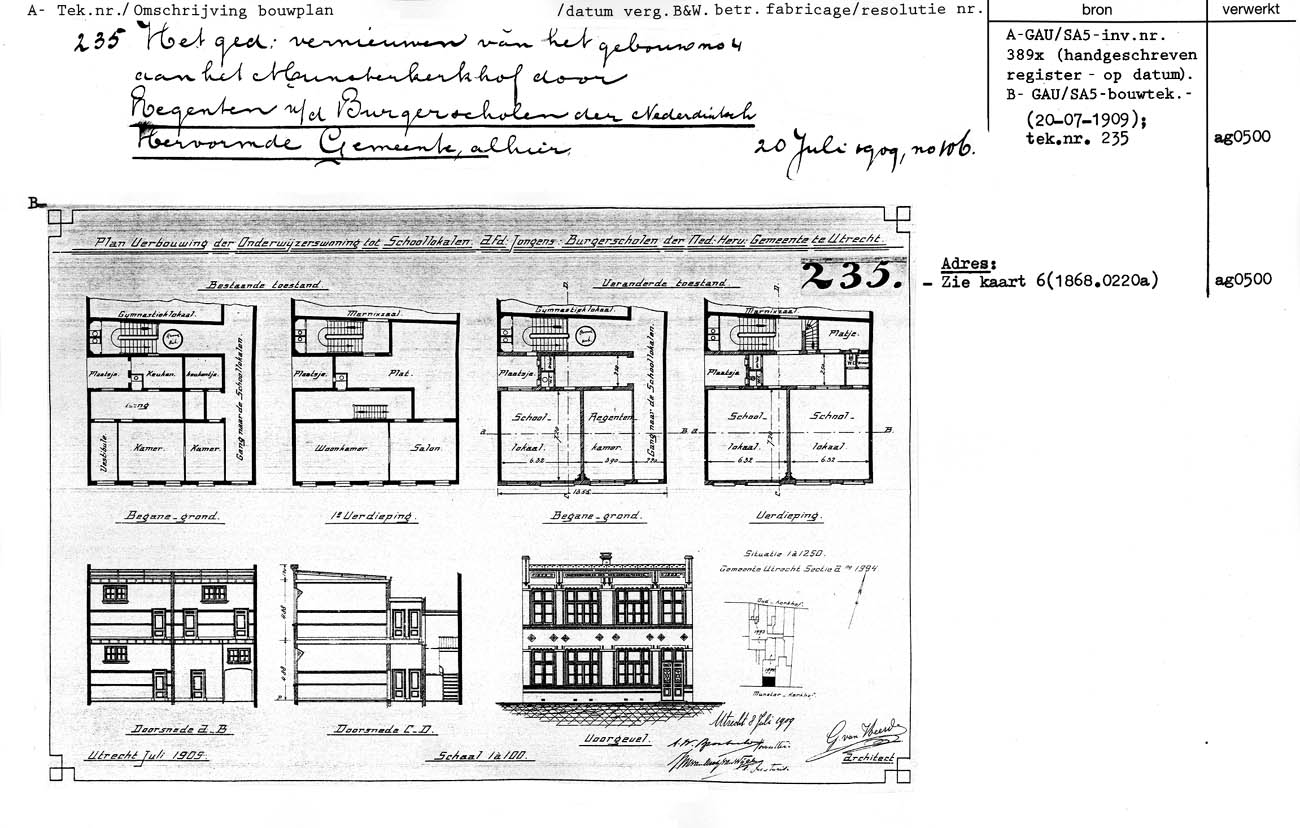 A- Tek.nr./Omschrijving bouwplan /datum verg.B&W. betr. fabricage/resolutie nr.
bron
verwerkt
235 Het ged: vernieuwen van het gebouw no 4
aan het Munsterkerkhof door
Regenten v/d Burgerscholen der Nederduitsch
Hervormde Gemeente, alhier.
20 Juli 1909, no 106.
A-GAU/SA5-inv.nr.
389x (handgeschreven
register - op datum).
B- GAU/SA5-bouwtek.-
(20-07-1909);
tek.nr. 235
ag0500
B-
Plan Verbouwing der Onderwijzerswoning tot Schoollokalen. afd: Jongens: Burgerscholen der Ned: Herv: Gemeente te Utrecht.
235.
Adres:
- Zie kaart 6(1868.0220a)
ag0500
Bestaande toestand
Veranderde toestand
Gymnastieklokaal.
Plaatsje.
Keuken.
keukentje.
Gang
Gang naar de Schoollokalen.
Vestibule
Kamer.
Kamer.
Begane-grond.
Marnixzaal.
Plaatsje.
Plat.
Woonkamer
Salon.
1e Verdieping.
D.
Gymnastieklokaal.
Plaatsje.
School-
lokaal.
Regenten
kamer.
Gang naar de Schoollokalen.
a
B.
7.20
6.32
3.90
C
Begane-grond.
D.
Marnixzaal.
Platje.
Plaatsje.
W.C.
School-
lokaal.
School-
lokaal.
a
B.
7.20
6.32
6.32
C
Verdieping.
Doorsnede a-B
Doorsnede C-D.
Voorgevel.
Situatie 1 à 1250.
Gemeente Utrecht Sectie a no 1994
Oud-Kerkhof.
Munster-Kerkhof.
Utrecht 8 Juli 1909
G van Heerde
architect
Utrecht Juli 1909.
Schaal 1 à 100.